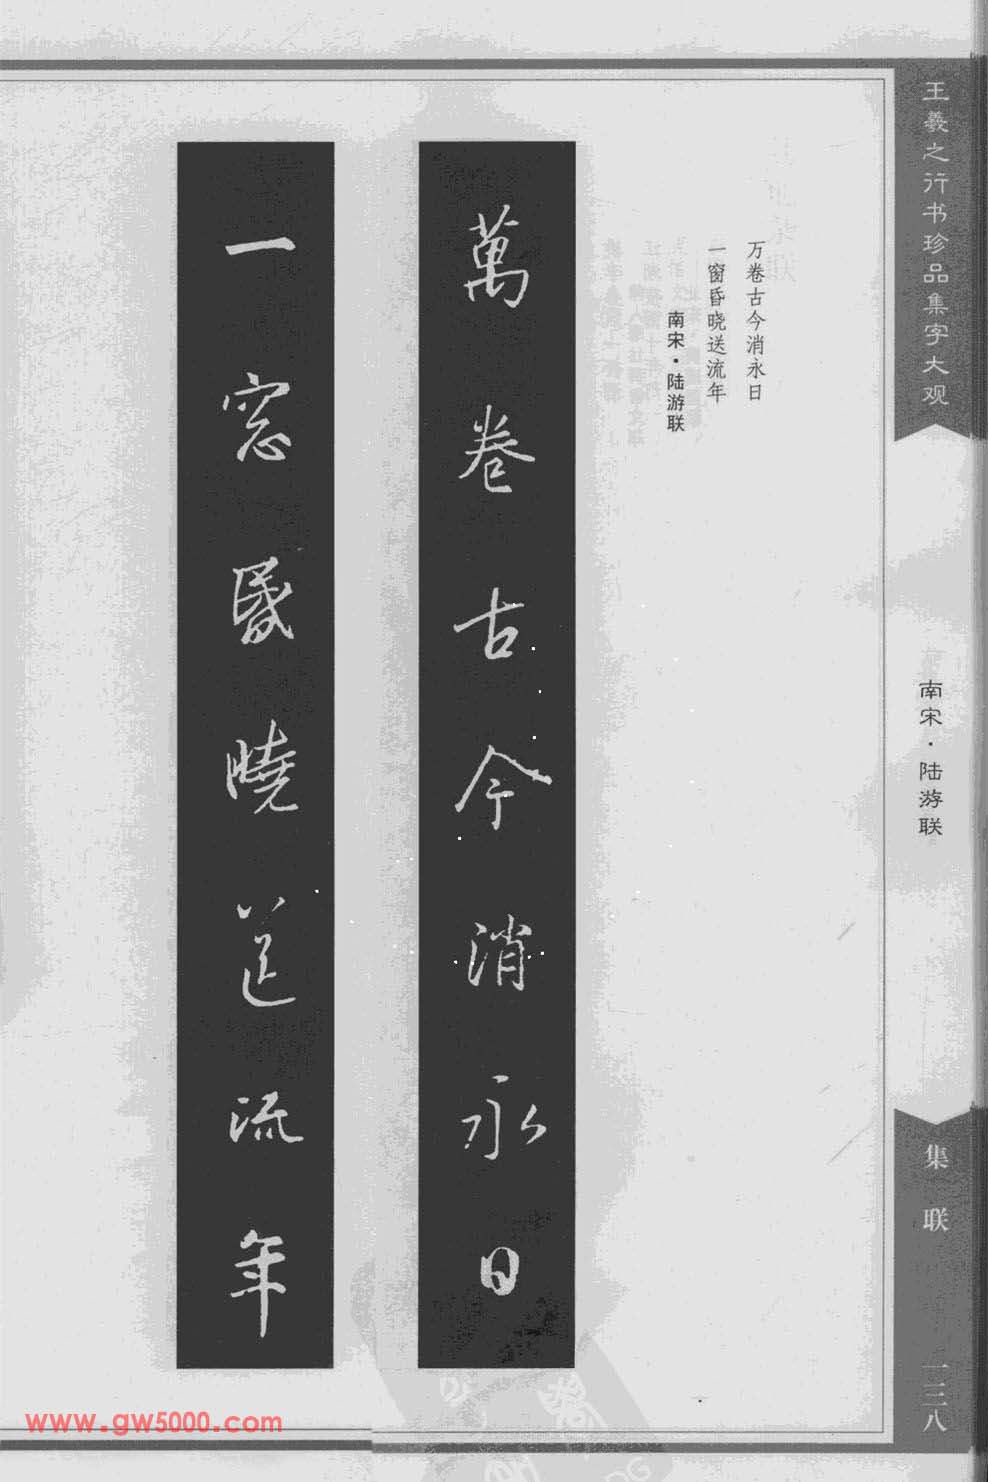 王羲之行书珍品集字大观
南宋·陆游联
集联
一三八
万卷古今消永日
一窗昏晓送流年
南宋·陆游联
萬卷古今消永日
一窓昬曉送流年
www.gw5000.com